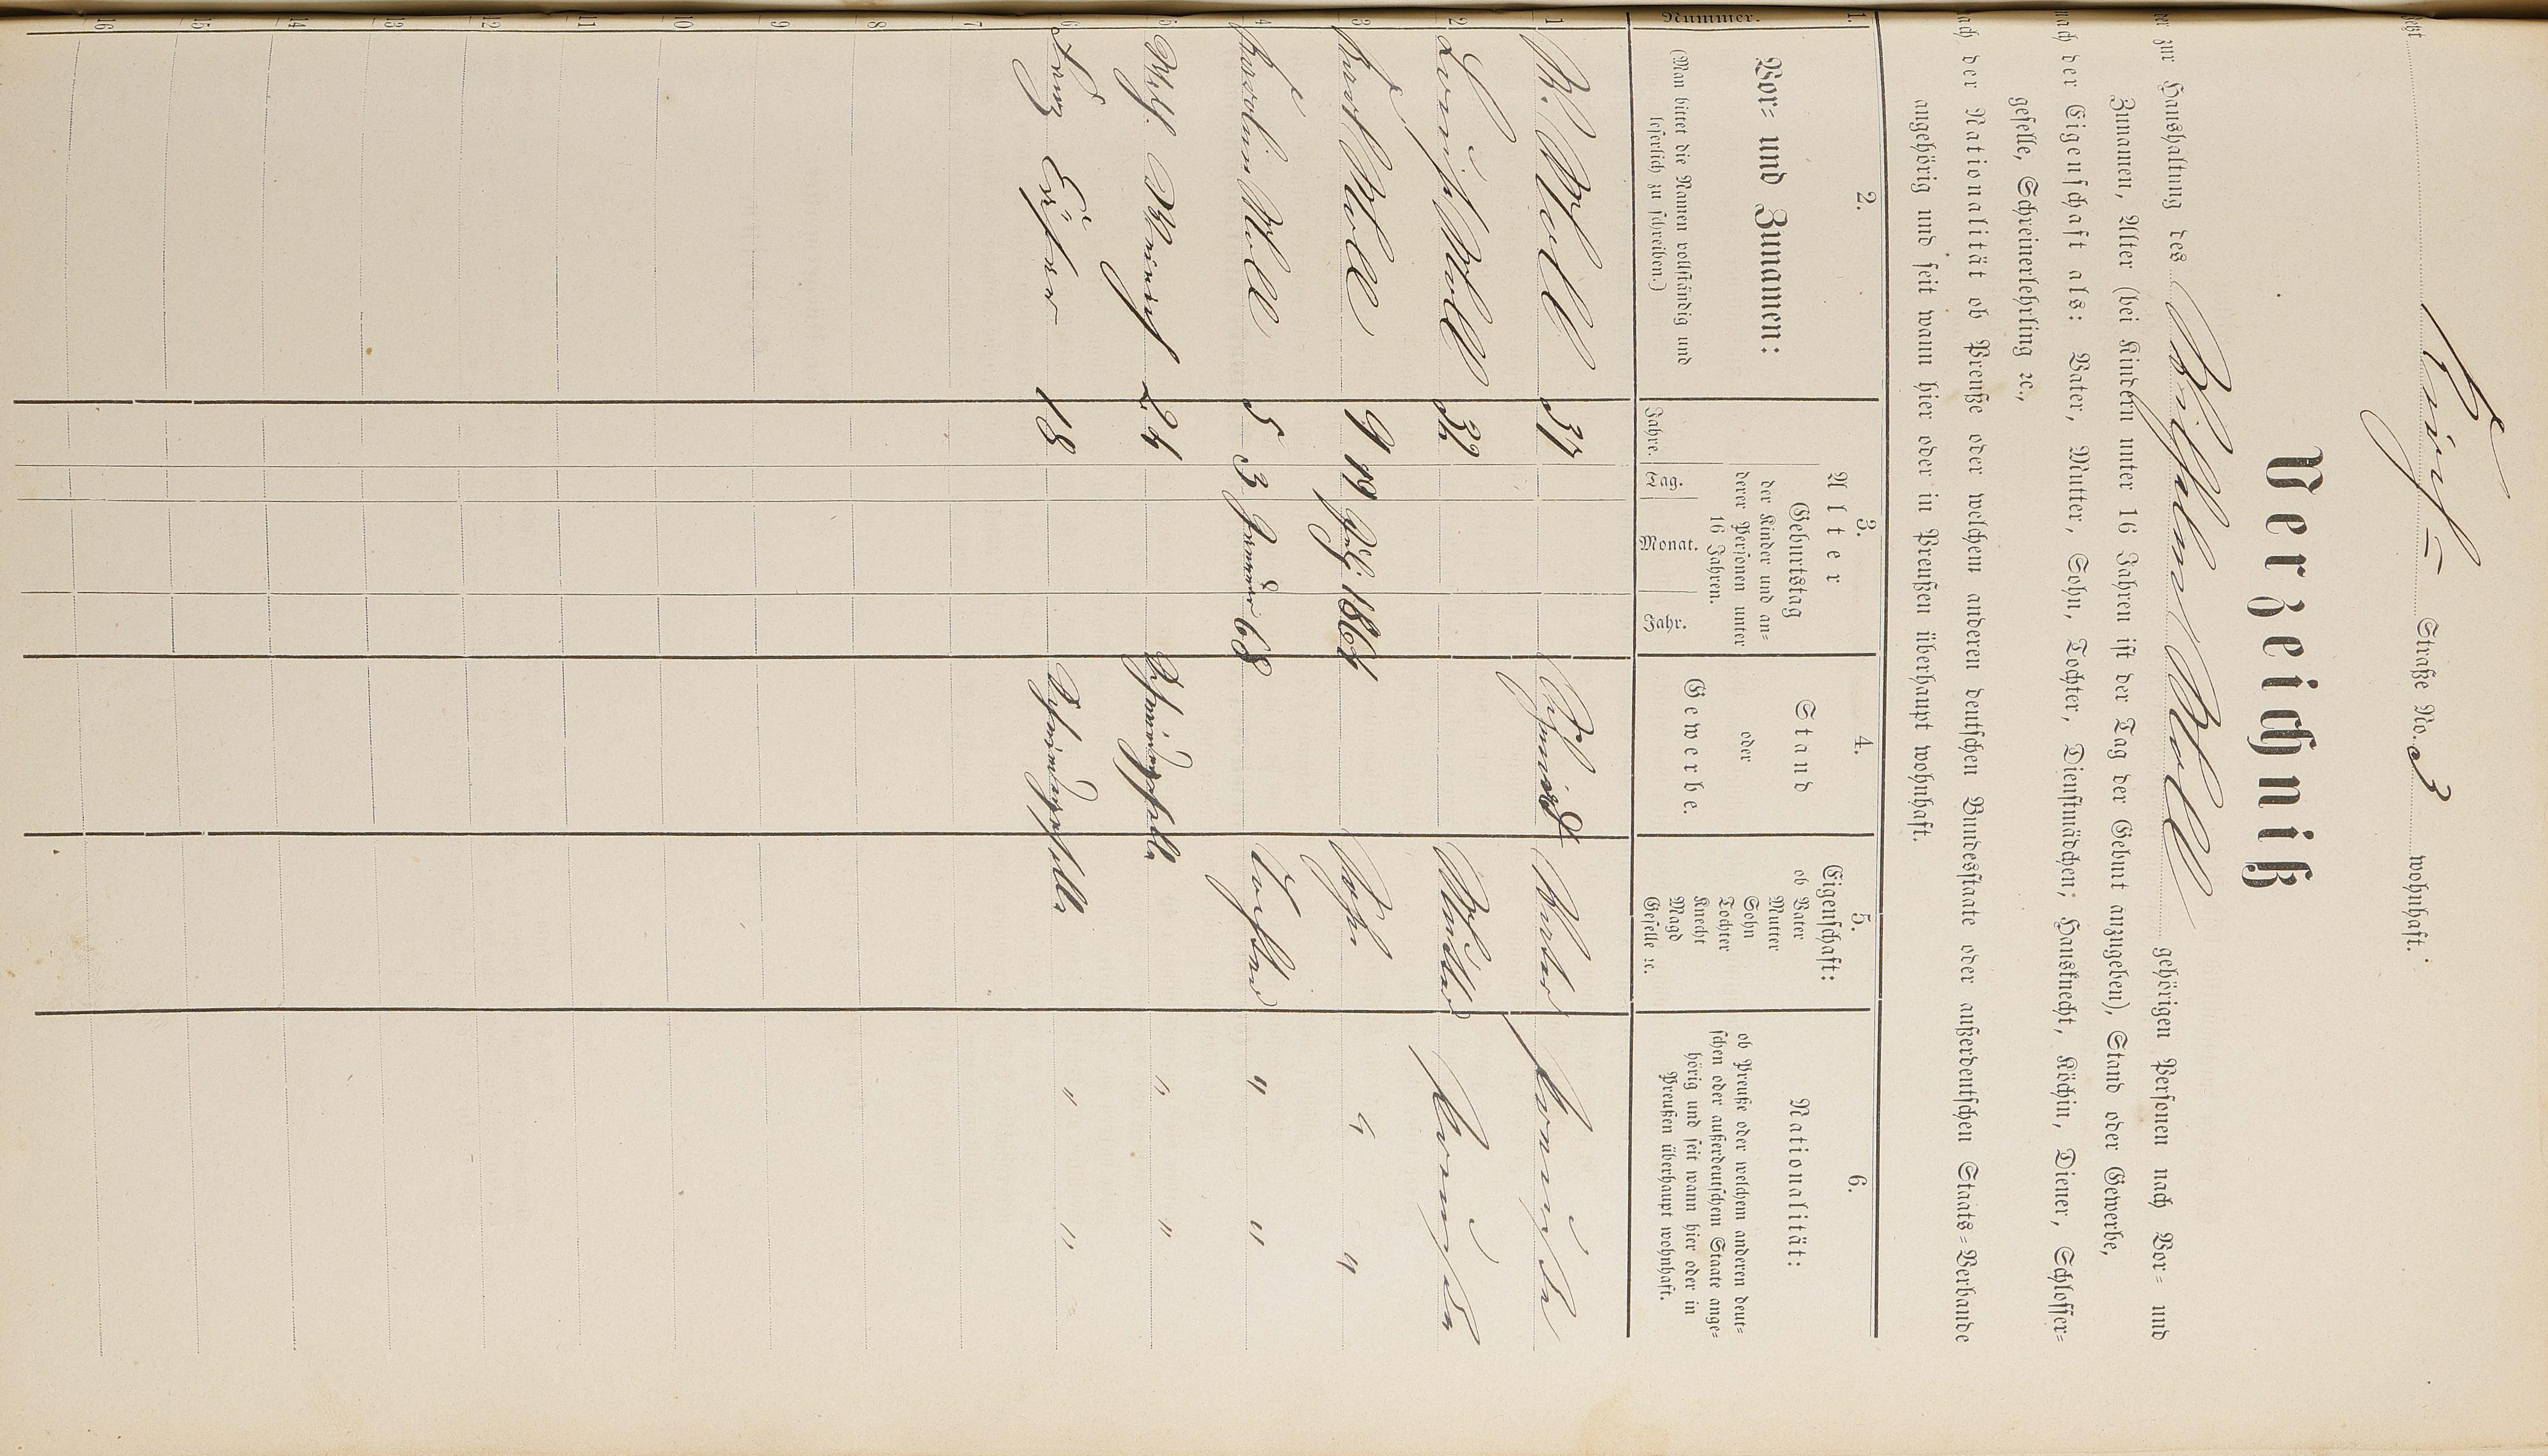 Kirch= Straße No. 3 wohnhaft.
Verzeichniß
zur Haushaltung des Wilhelm Moll gehörigen Personen nach Vor= und
Zunamen, Alter (bei Kindern unter 16 Jahren ist der Tag der Geburt anzugeben), Stand oder Gewerbe,
nach der Eigenschaft als: Vater, Mutter, Sohn, Tochter, Dienstmädchen; Hausknecht, Köchin, Diener, Schlosser=
geselle, Schreinerlehrling ꝛc.,
nach der Nationalität ob Preuße oder welchem anderen deutschen Bundesstaate oder außerdeutschen Staats=Verbande
angehörig und seit wann hier oder in Preußen überhaupt wohnhaft.
1. 2. 3. 4. 5. 6.
Nummer.
Vor= und Zunamen:
(Man bittet die Namen vollständig und
leserlich zu schreiben.)
Alter
Geburtstag
der Kinder und an=
derer Personen unter
16 Jahren.
Jahre. Tag. Monat. Jahr.
Stand
oder
Gewerbe.
Eigenschaft:
ob Vater
Mutter
Sohn
Tochter
Knecht
Magd
Geselle ꝛc.
Nationalität:
ob Preuße oder welchem anderen deut=
schen oder außerdeutschem Staate ange=
hörig und seit wann hier oder in
Preußen überhaupt wohnhaft.
1 W. Moll 37 Schmied Vater Preuße
2 Louise Moll 32 Mutter Preuße
3 Karl Moll 9 19 Juli 1864 Sohn " "
4 Karoline Moll 5 3 Januar 68 Tochter " "
5 Wilh. 24 Schmiedgeselle " "
6 Franz 18 Schmiedgeselle " "
7
8
9
10
11
12
13
14
15
16